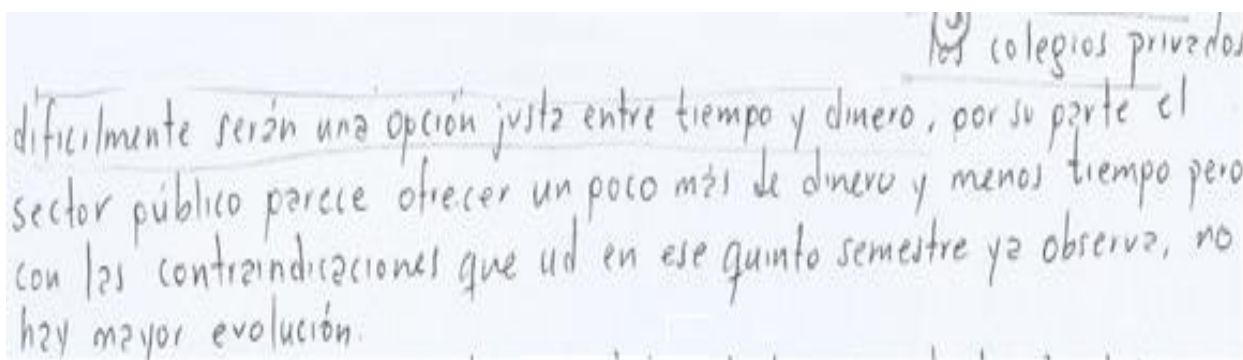 los colegios privados
dificilmente serán una opción justa entre tiempo y dinero, por su parte el
sector público parece ofrecer un poco más de dinero y menos tiempo pero
con las contraindicaciones que ud en ese quinto semestre ya observa, no
hay mayor evolución.